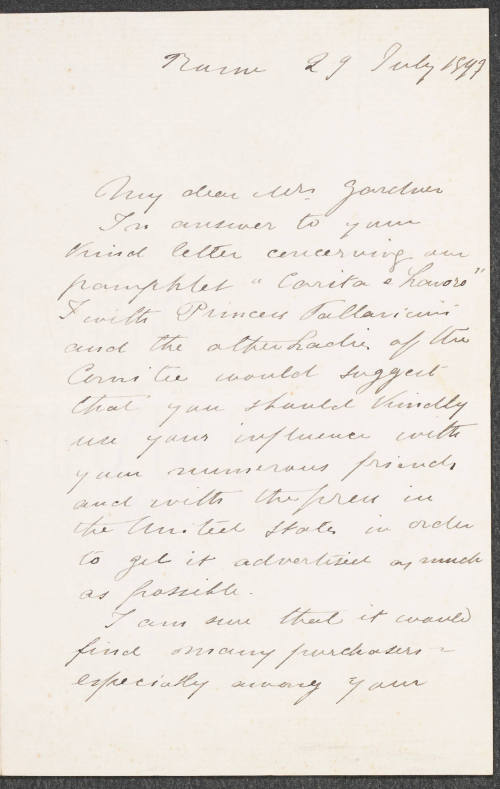 Rome 29 July 1897
My dear Mrs. Gardner
In answer to your
kind letter concerning our
pamphlet "Carita e Lavoro"
I with Princess Pallavicini
and the other Ladies of the
Comitee would suggest
that you should kindly
use your influence with
your numerous friends
and with the press in
the United States in order
to get it advertised as much
as possible.
I am sure that it would
find many purchasers -
especially among your